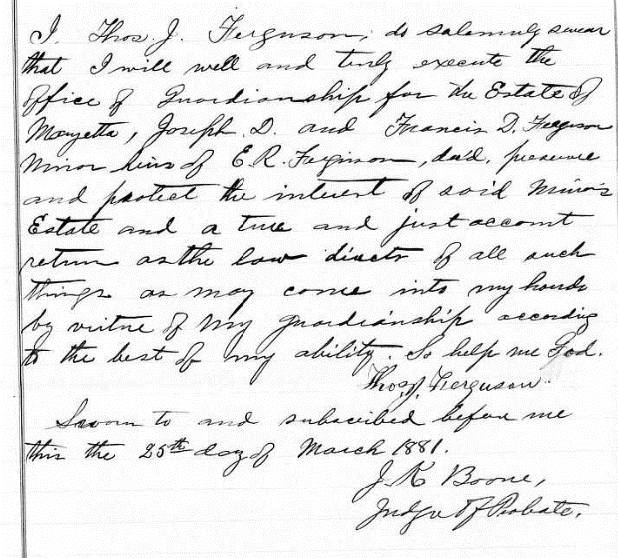 I, Thos. J. Ferguson, do solemnly swear
that I will well and truly execute the
office of Guardianship for the Estate of
Mouzetta, Joseph D. and Francis D. Ferguson
minor heirs of E. R. Ferguson, dec'd, preserve
and protect the interest of said minors
Estate and a true and just account
return as the law directs of all such
things as may come into my hands
by virtue of my guardianship according
to the best of my ability. So help me God.
Thos. J. Ferguson
Sworn to and subscribed before me
this the 25th day of March 1881.
J. K. Boone,
Judge of Probate.